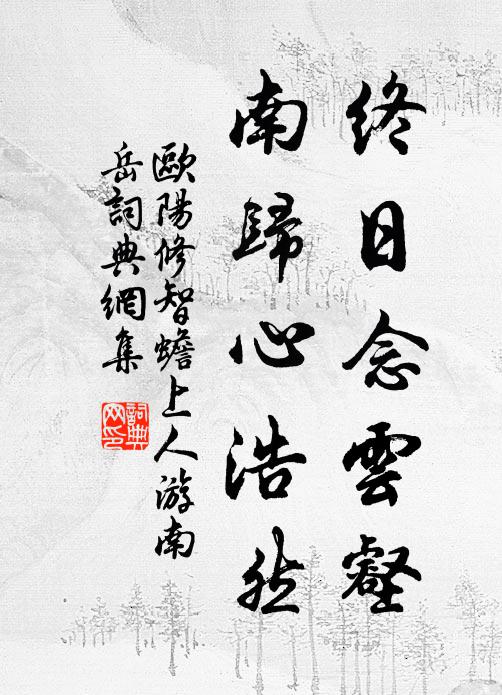 終日念雲壑
南歸心浩然
歐陽修智蟾上人游南
岳詞典網集
詞典
网印